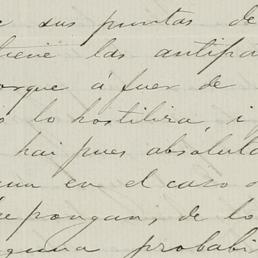 sus puntas de
tiene las antipa
orque á fuer de
o lo hostilira, i
hai pues absoluta
en el caso
pongan, de lo
guna probabi